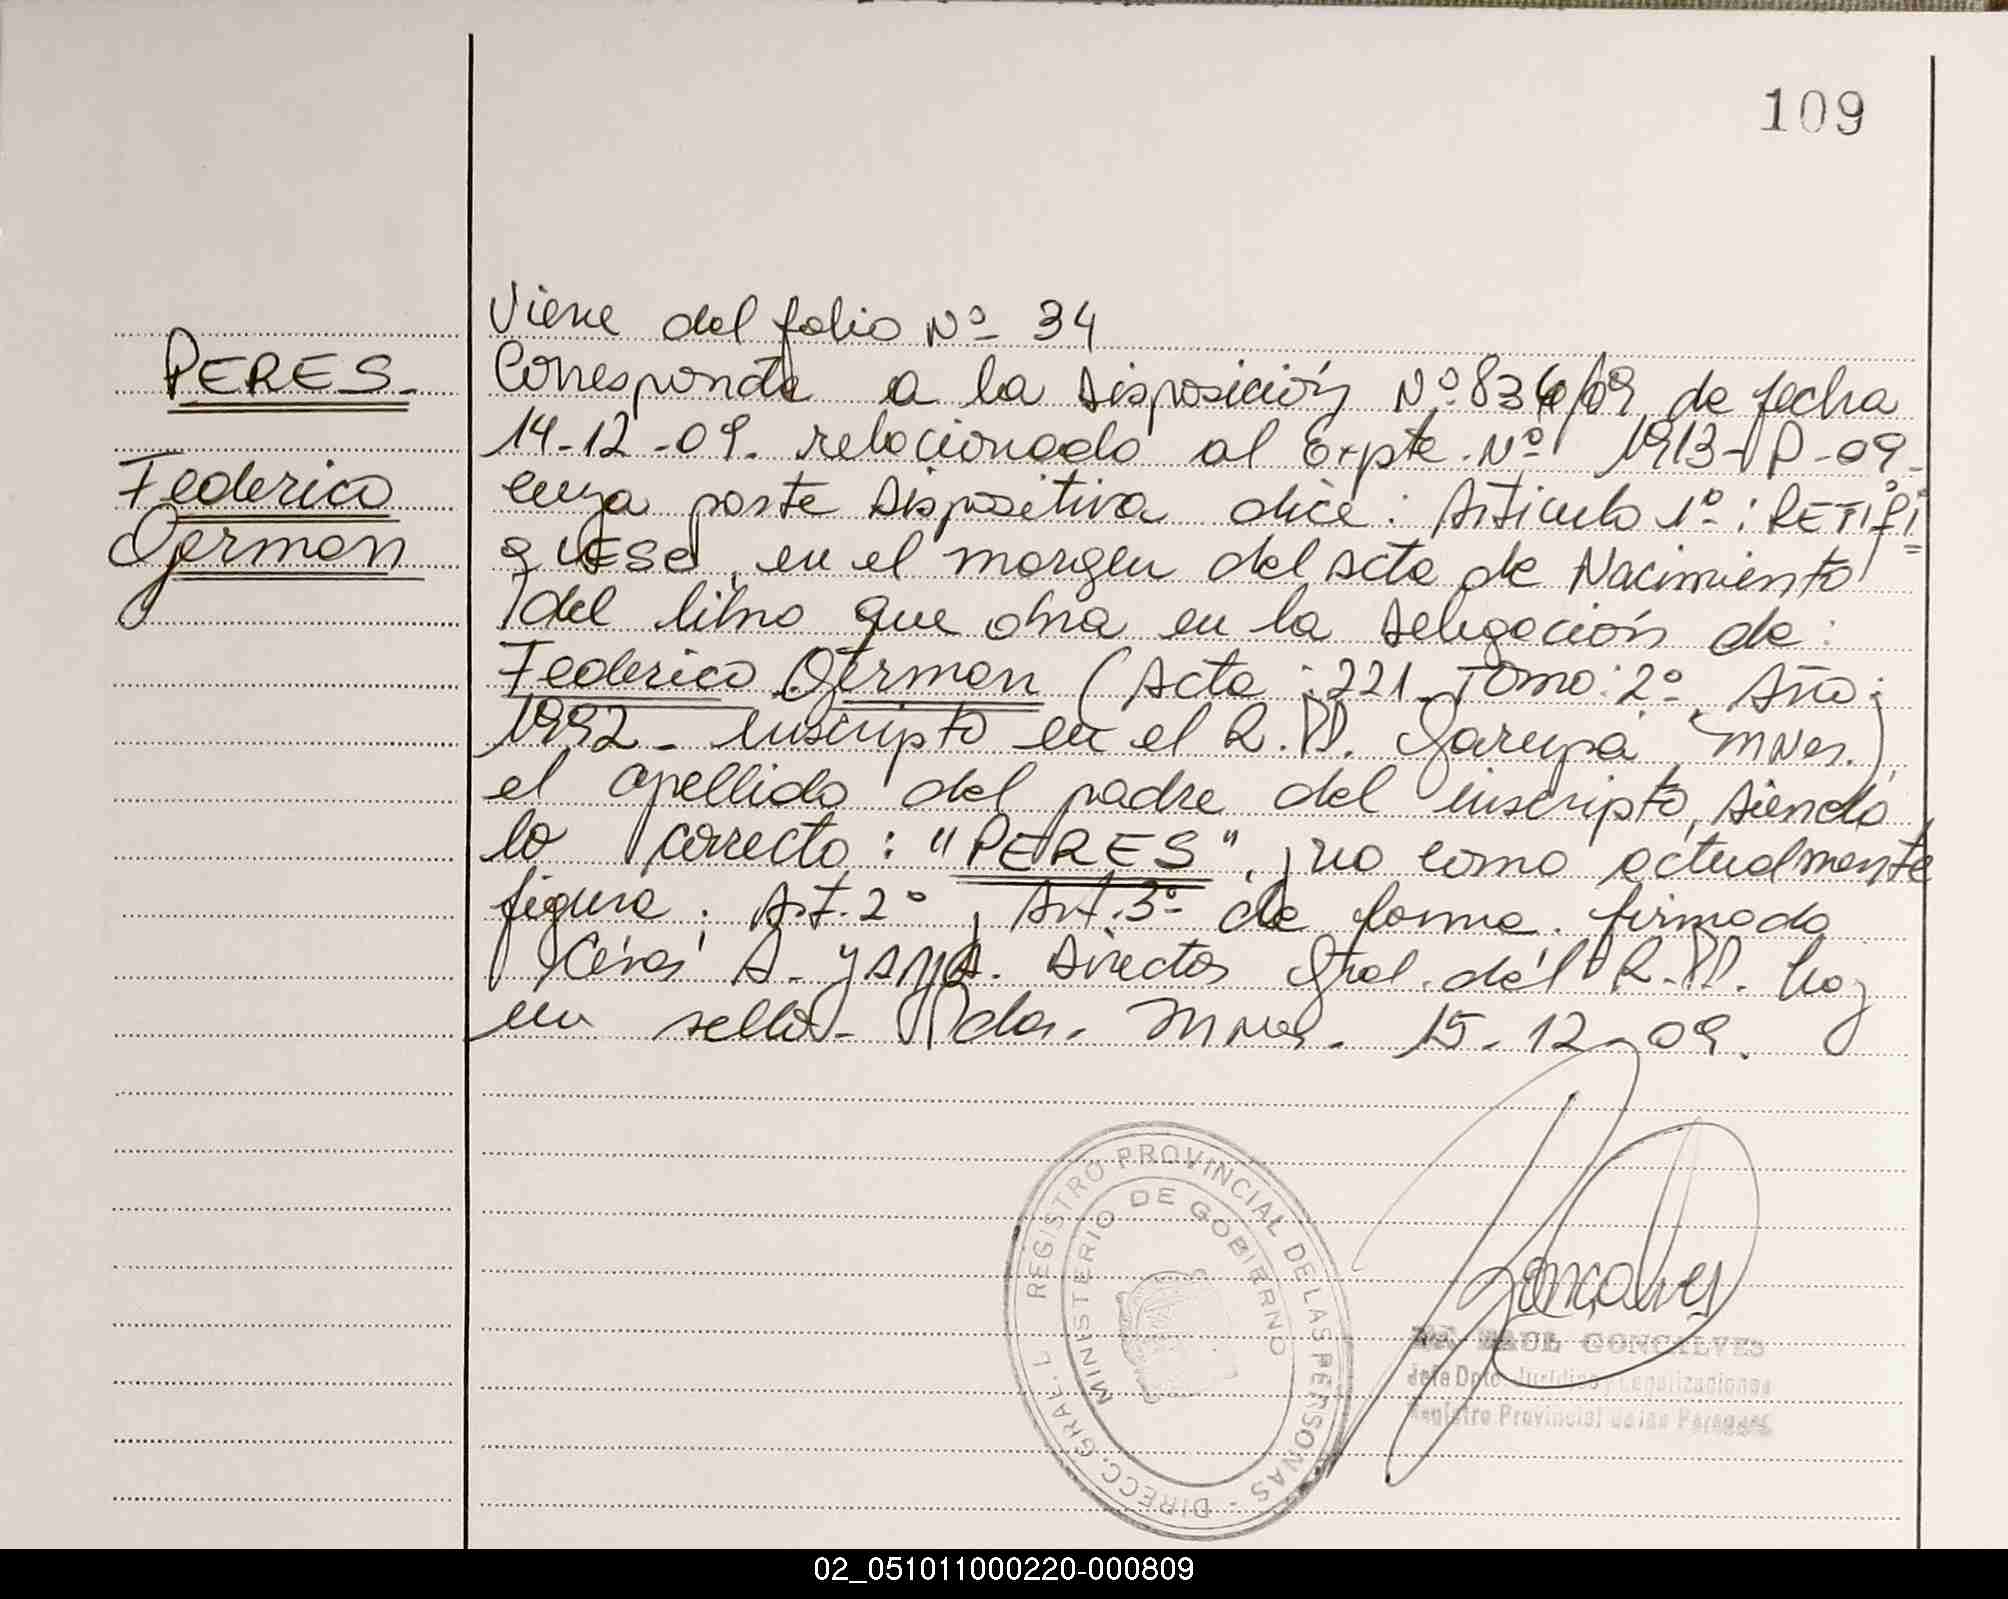 109
Viene del folio Nº 34
PERES.-
Corresponde a la Disposición Nº 836/09, de fecha
14-12-09. relacionado al Expte. Nº 1913-P-09-
Federico
cuya parte Dispositiva dice: Articulo 1º: RETIFI
German
QUESE, en el margen del Acta de Nacimiento
del libro que obra en la Delegación de:
Federico German (Acta: 221. Tomo: 2º. Año:
1992- inscripto en el R.PP. Garupá, Mnes.),
el apellido del padre del inscripto, siendo
lo correcto: "PERES". y no como actualmente
figura. Art. 2º y Art. 3º de forma. firmado
A. Director Gral. del R.PP. hay
un sello- Pdas. Mnes. 15-12-09.
REGISTRO PROVINCIAL DE LAS PERSONAS - DIRECC. GRAL.
MINISTERIO DE GOBIERNO
Goncalves
RAUL GONCALVES
Jefe Dpto. Jurídico y Legalizaciones
Registro Provincial de las Personas
02_051011000220-000809